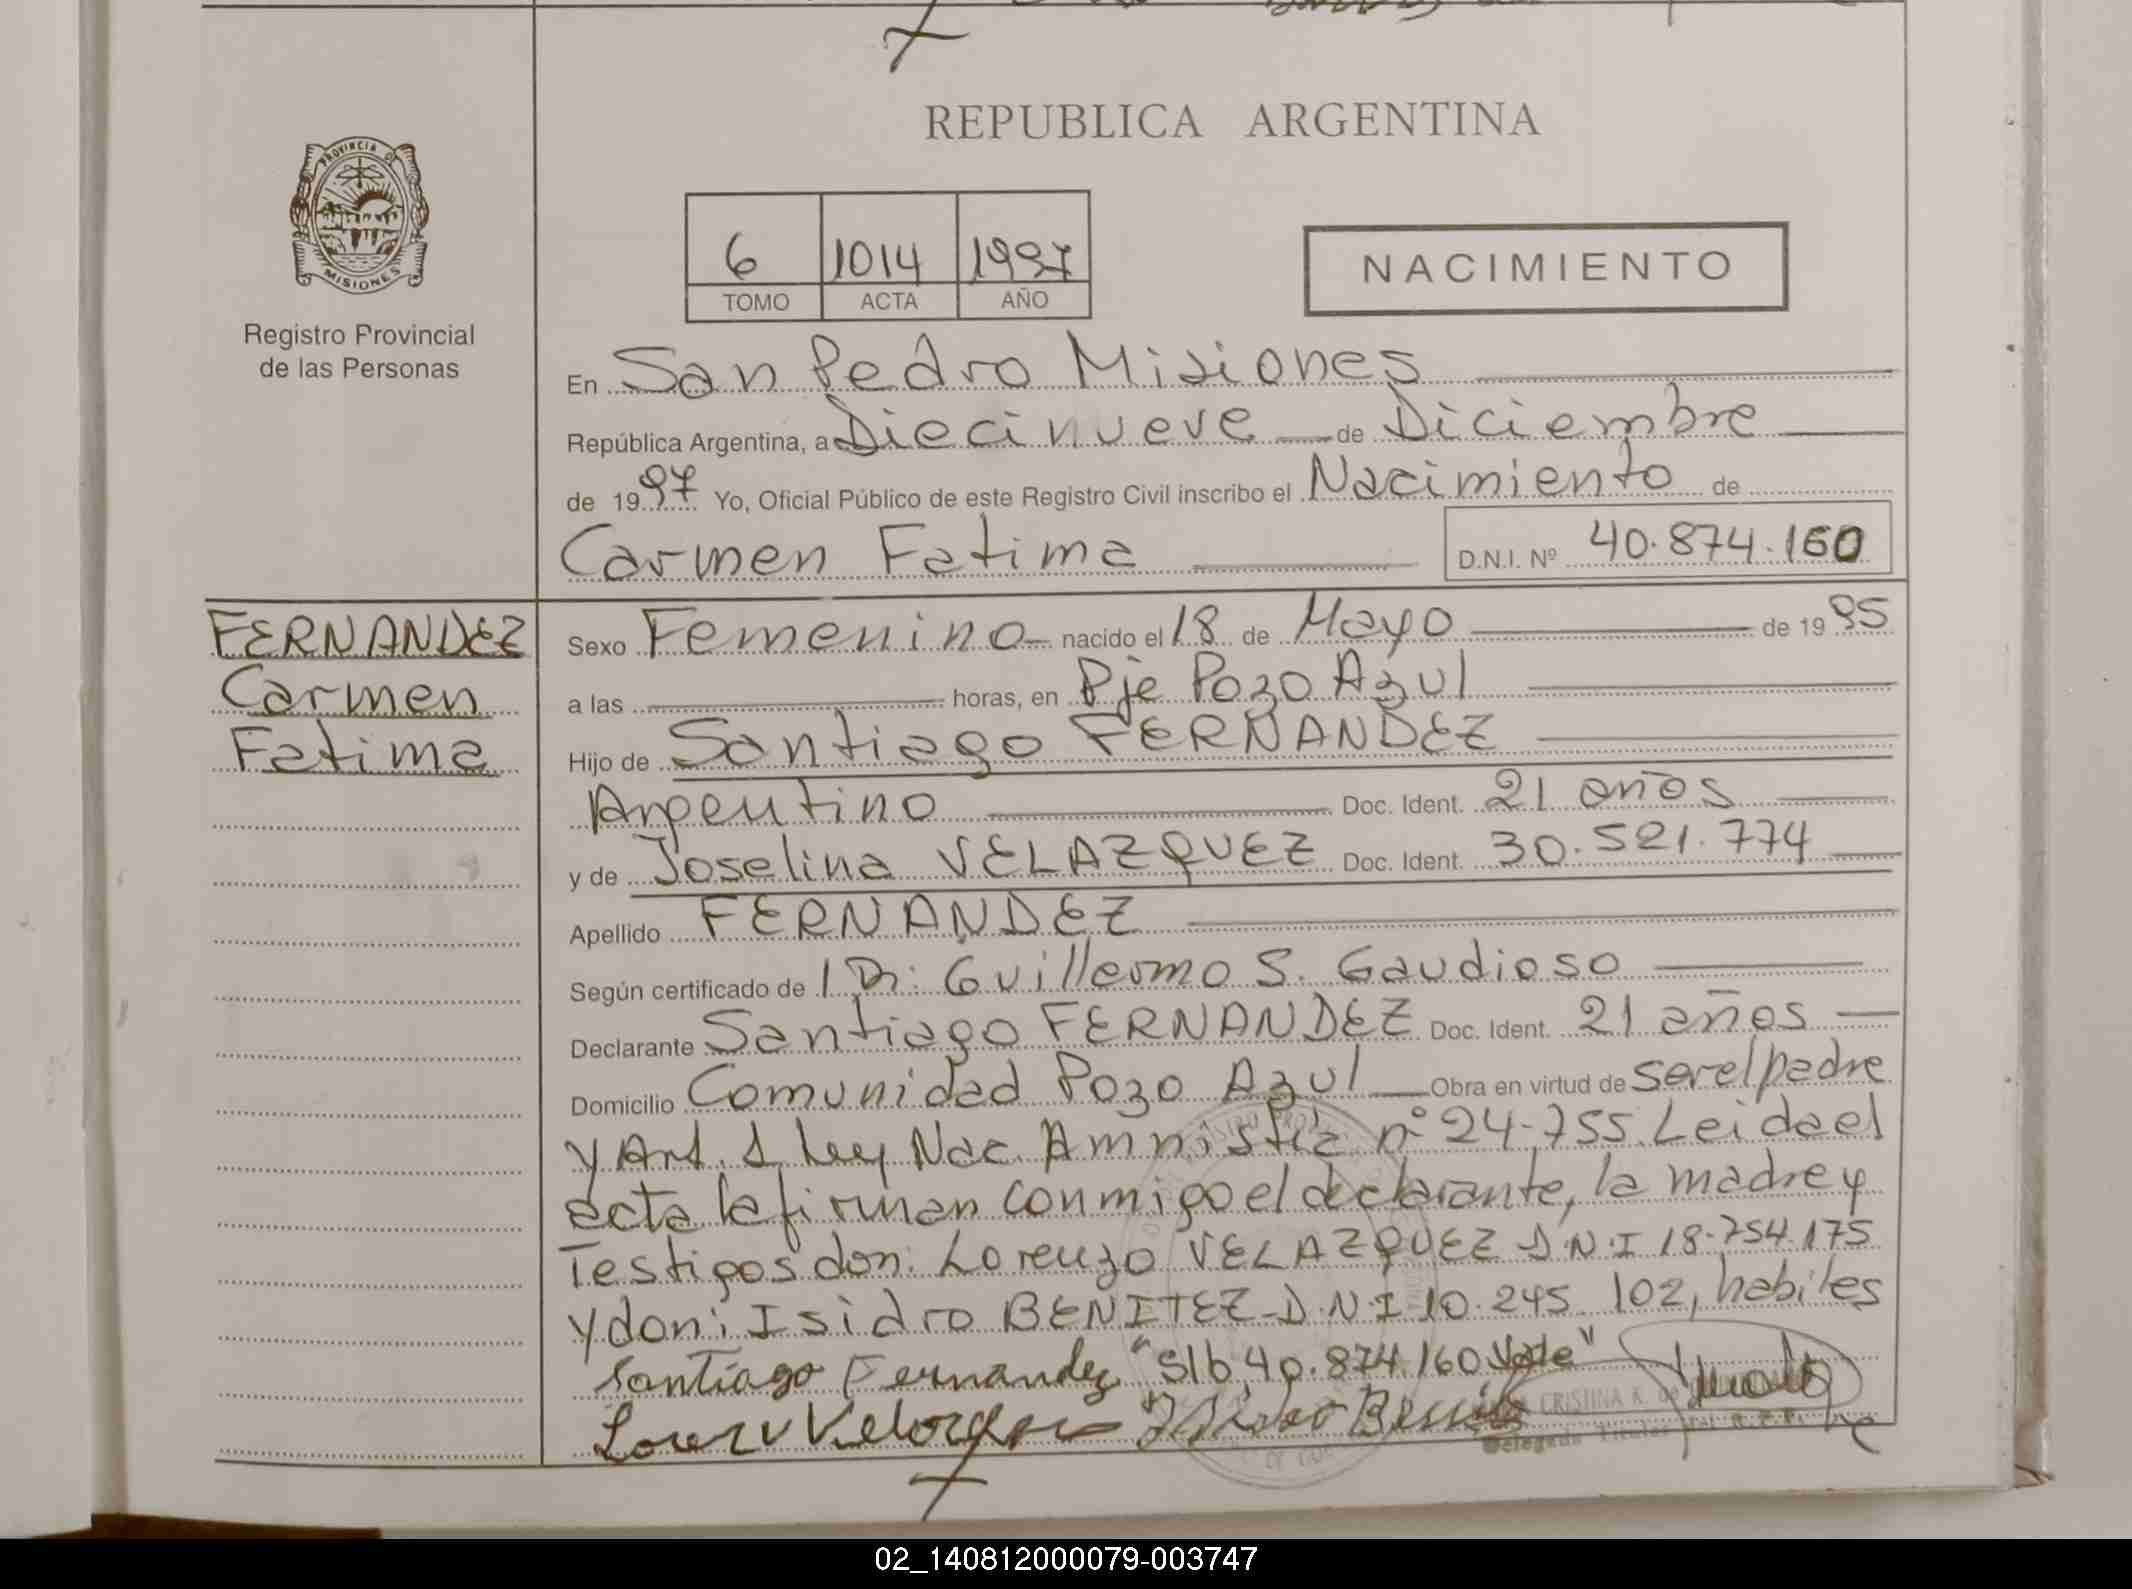 REPUBLICA ARGENTINA
PROVINCIA DE
MISIONES
Registro Provincial
de las Personas
6 1014 1997
TOMO ACTA AÑO
NACIMIENTO
En San Pedro Misiones
República Argentina, a Diecinueve de Diciembre
de 1997 Yo, Oficial Público de este Registro Civil inscribo el Nacimiento de
Carmen Fatima D.N.I. Nº 40.874.160
FERNANDEZ
Carmen
Fatima
Sexo Femenino nacido el 18 de Mayo de 1995
a las horas, en Pje Pozo Azul
Hijo de Santiago FERNANDEZ
Argentino Doc. Ident. 21 años
y de Joselina VELAZQUEZ Doc. Ident. 30.521.774
Apellido FERNANDEZ
Según certificado de l Dr: Guillermo S. Gaudioso
Declarante Santiago FERNANDEZ Doc. Ident. 21 años
Domicilio Comunidad Pozo Azul Obra en virtud de ser el padre
y Art. 1 Ley Nac. Amnistia nº 24.755. Leida el
acta la firman conmigo el declarante, la madre y
Testigos don: Lorenzo VELAZQUEZ D.N.I 18.754.175
y don: Isidro BENITEZ D.N.I 10.245.102, habiles
Santiago Fernandez "S/b 40.874.160 Vale"
CRISTINA K. de
Delegada Titular del R.P.P.
02_140812000079-003747